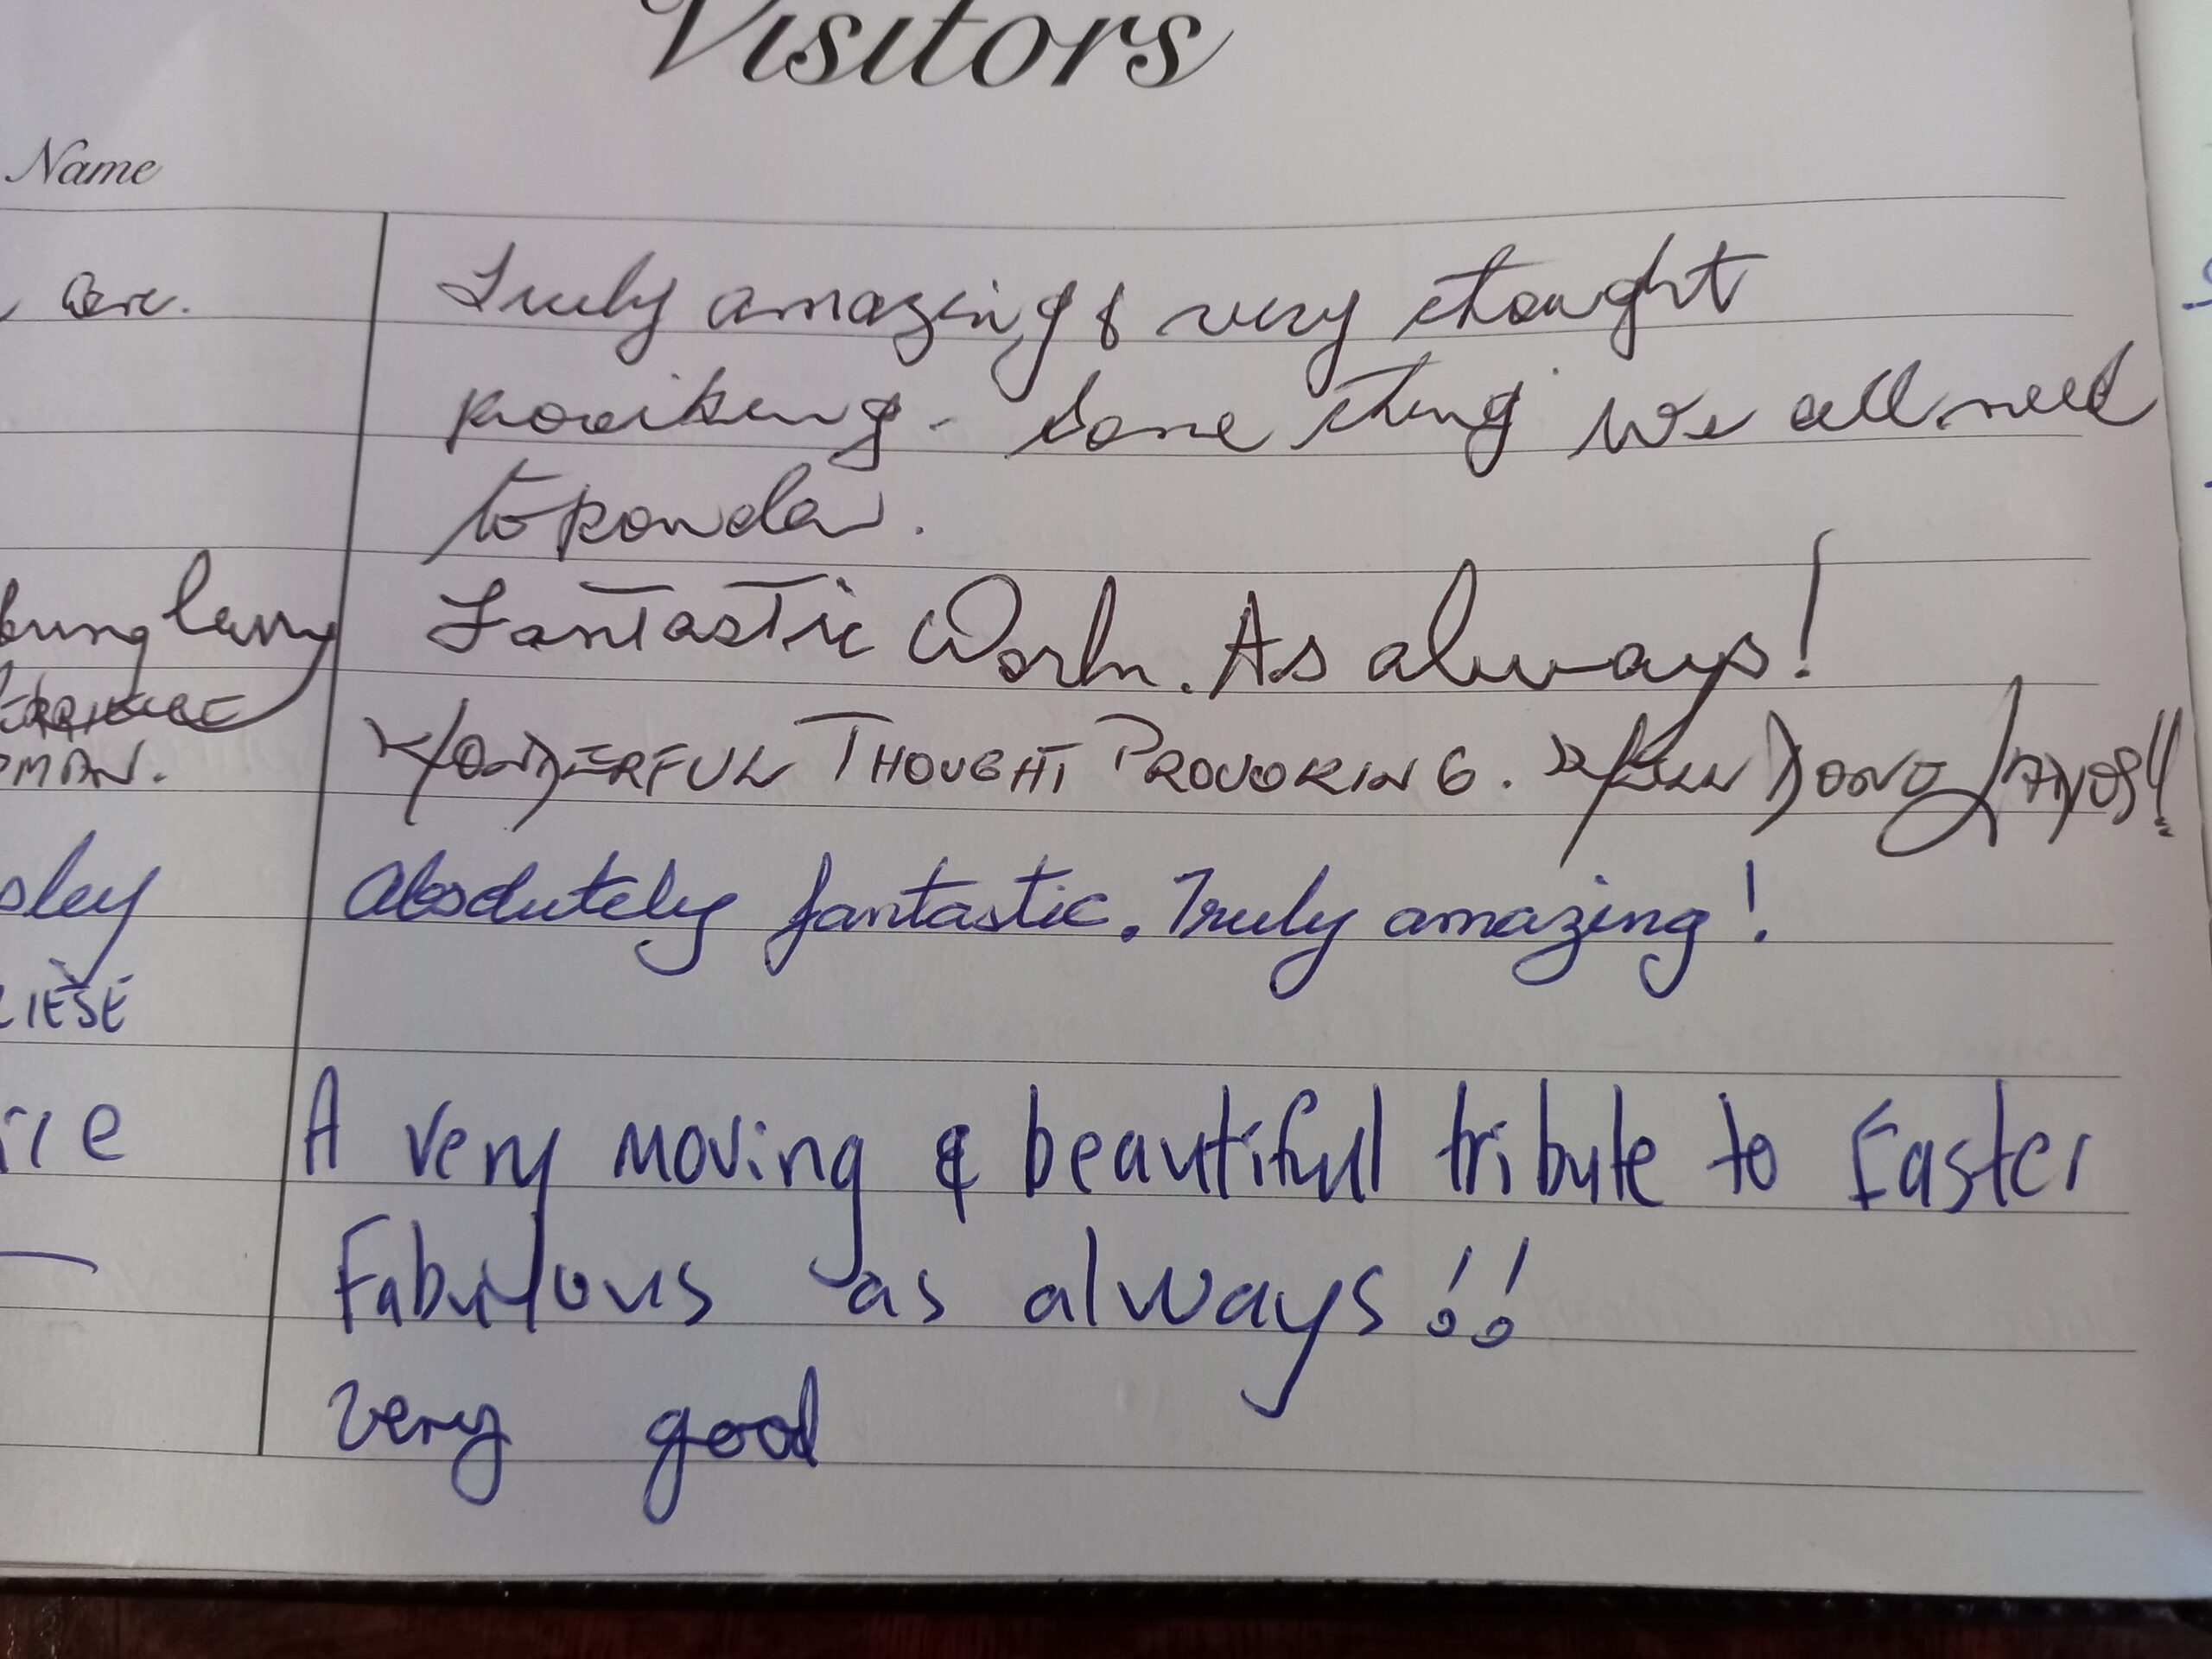 Visitors
Name
Truly amazing & very thought
provoking - Some thing we all need
to ponder.
Fantastic Work. As always!
WONDERFUL THOUGHT PROVOKING. WELL DONE
OMAN.
Absolutely fantastic. Truly amazing!
sley
LIESE
A very moving & beautiful tribute to Easter
Fabulous as always!!
very good